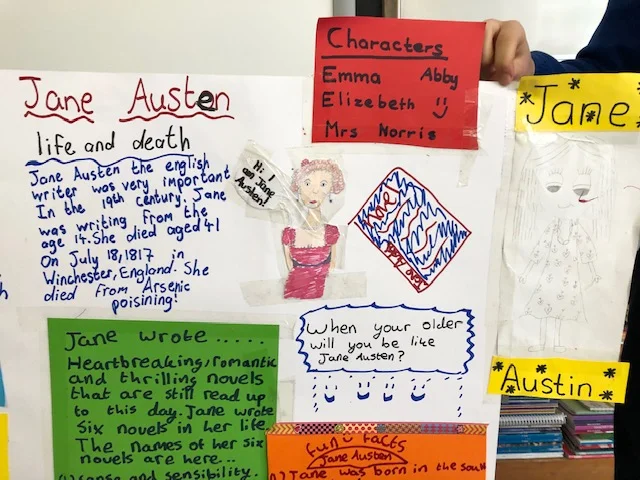 Jane Austen
life and death
Jane Austen the english
writer was very important
In the 19th century. Jane
was writing from the
age 14. She died aged 41
On July 18, 1817 in
Winchester, England. She
died from Arsenic
poisining!
Hi! I
am Jane
Austen!
Characters
Emma Abby
Elizebeth
Mrs Norris
Jane
Austin
When your older
will you be like
Jane Austen?
Jane wrote .....
Heartbreaking, romantic
and thrilling novels
that are still read up
to this day. Jane wrote
Six novels in her life.
The names of her six
novels are here...
sense and sensibility.
Fun facts
Jane Austen
Jane was born in the sout